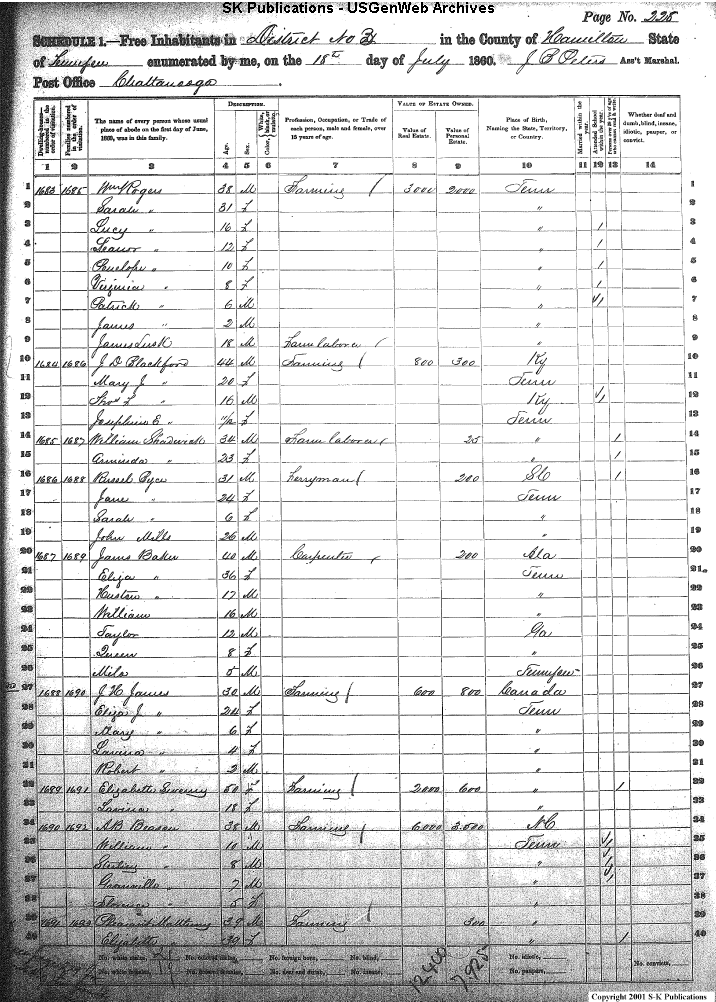 SK Publications - USGenWeb Archives
Page No. 228
SCHEDULE 1.—Free Inhabitants in District No 3 in the County of Hamilton State
of Tennessee enumerated by me, on the 18th day of July 1860. J B Peters Ass't Marshal.
Post Office Chattanooga.
Dwelling-houses—numbered in the order of visitation.
Families numbered in the order of visitation.
The name of every person whose usual place of abode on the first day of June, 1860, was in this family.
DESCRIPTION.
Age.
Sex.
Color, White, black, or mulatto.
Profession, Occupation, or Trade of each person, male and female, over 15 years of age.
VALUE OF ESTATE OWNED.
Value of Real Estate.
Value of Personal Estate.
Place of Birth, Naming the State, Territory, or Country.
Married within the year.
Attended School within the year.
Whether deaf and dumb, blind, insane, idiotic, pauper, or convict.
1 2 3 4 5 6 7 8 9 10 11 12 13 14
1 1683 1685 Wm Rogers 38 M Farming 3000 2000 Tenn 1
2 Sarah " 31 f " 2
3 Lucy " 16 f " 1 3
4 Leanor " 12 f " 1 4
5 Penelope " 10 f " 1 5
6 Virginia " 8 f " 1 6
7 Patrick " 6 M " 1 7
8 James " 2 M " 8
9 James Lusk 18 M Farm laborer " 9
10 1684 1686 J D Blackford 44 M Farming 800 300 Ky 10
11 Mary J " 20 f Tenn 11
12 Thos F " 16 M Ky 1 12
13 Josephine E " f Tenn 13
14 1685 1687 William Shadwick 34 M Farm laborer 25 " 1 14
15 Arminda " 23 f " 1 15
16 1686 1688 Russel Pyce 31 M Ferryman 200 SC 1 16
17 Jane " 24 f Tenn 17
18 Sarah " 6 f " 18
19 John Mills 26 M " 19
20 1687 1689 James Baker 40 M Carpenter 200 Ala 20
21 Eliza " 36 f Tenn 21
22 Huston " 17 M " 22
23 William 16 M " 23
24 Taylor 12 M Ga 24
25 Queen 8 f " 25
26 Milo 5 M Tennessee 26
27 1688 1690 J H James 30 M Farming 600 800 Canada 27
28 Eliza J " 24 f Tenn 28
29 Mary " 6 f " 29
30 Lavina " 4 f " 30
31 Robert " 2 M " 31
32 1689 1691 Elizabeth Siveny 50 f Farming 2000 600 " 1 32
33 Lavina " 18 f " 33
34 1690 1692 A B Beason 38 M Farming 6000 3.000 NC 34
35 William " 10 M Tenn 1 35
36 Sterling " 8 M " 1 36
37 Granville " 7 M " 1 37
38 Florence " 5 f " 38
39 1691 1693 Pleasant Matthews 39 M Farming 300 " 39
40 Elizabeth " 39 f " 1 40
No. white males, No. colored males, No. foreign born, No. blind, 12400 7925 No. idiotic, No. convicts,
No. white females, No. colored females, No. deaf and dumb, No. insane, No. paupers,
Copyright 2001 S-K Publications